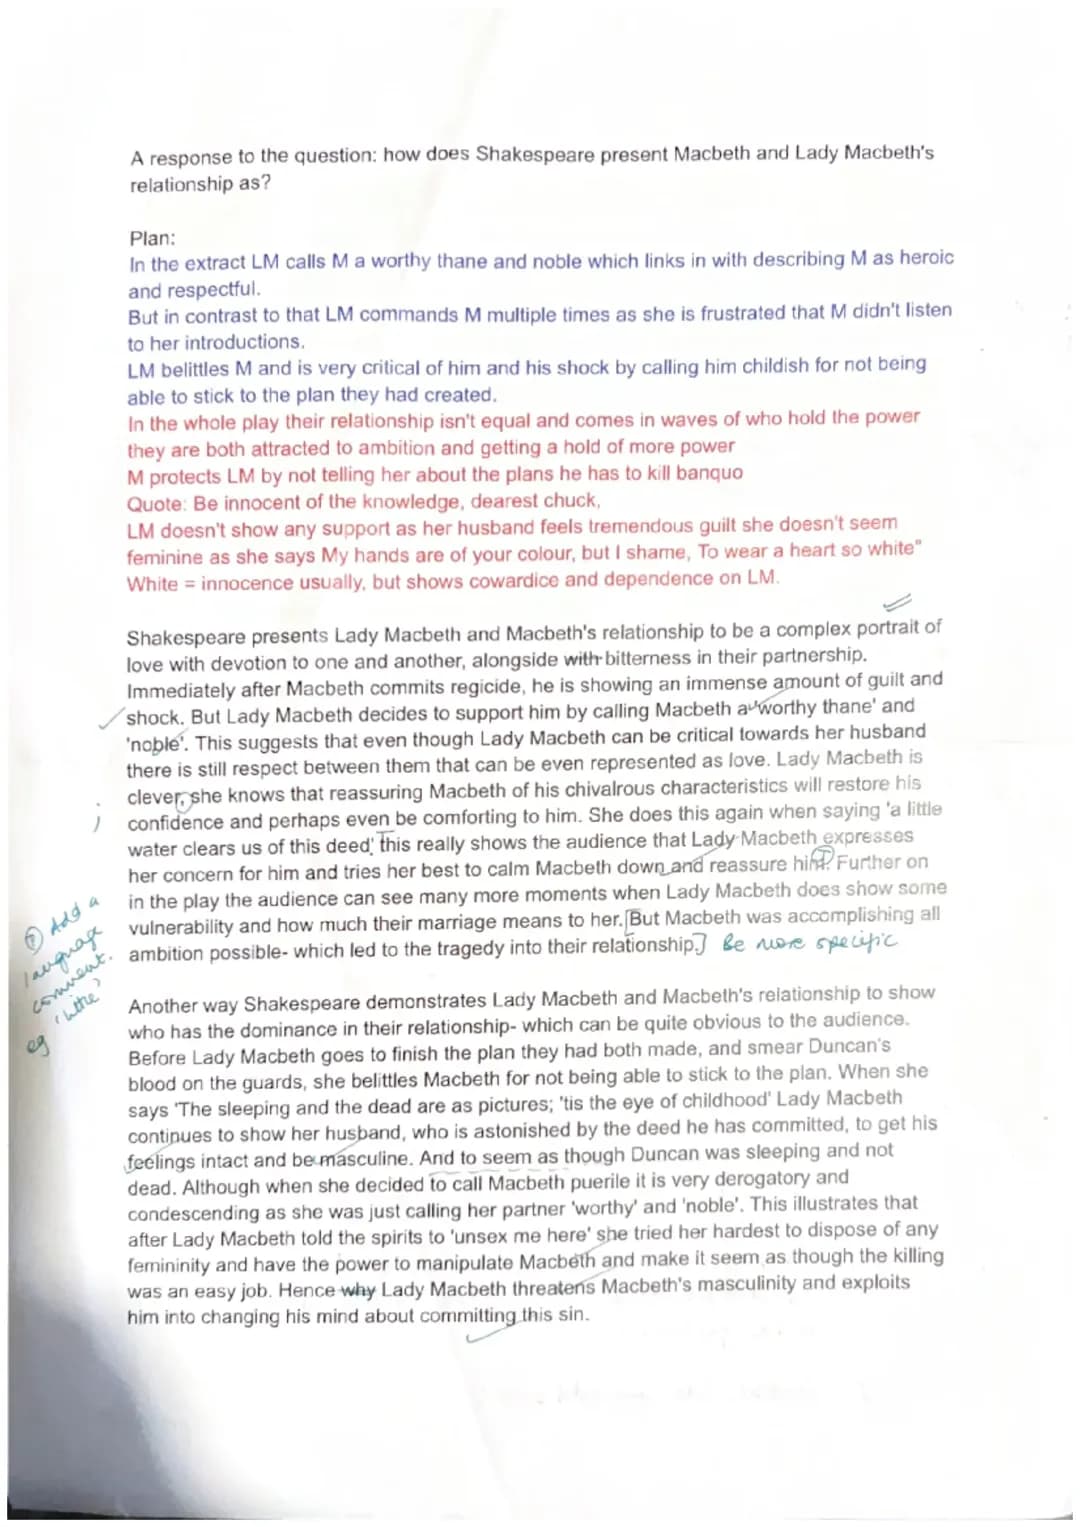 A response to the question: how does Shakespeare present Macbeth and Lady Macbeth's
relationship as?
Plan:
In the extract LM calls M a worthy thane and noble which links in with describing M as heroic
and respectful.
But in contrast to that LM commands M multiple times as she is frustrated that M didn't listen
to her introductions.
LM belittles M and is very critical of him and his shock by calling him childish for not being
able to stick to the plan they had created.
In the whole play their relationship isn't equal and comes in waves of who hold the power
they are both attracted to ambition and getting a hold of more power
M protects LM by not telling her about the plans he has to kill banquo
Quote: Be innocent of the knowledge, dearest chuck,
LM doesn't show any support as her husband feels tremendous guilt she doesn't seem
feminine as she says My hands are of your colour, but I shame, To wear a heart so white"
White = innocence usually, but shows cowardice and dependence on LM.
Shakespeare presents Lady Macbeth and Macbeth's relationship to be a complex portrait of
love with devotion to one and another, alongside with bitterness in their partnership.
Immediately after Macbeth commits regicide, he is showing an immense amount of guilt and
shock. But Lady Macbeth decides to support him by calling Macbeth a 'worthy thane' and
'noble'. This suggests that even though Lady Macbeth can be critical towards her husband
there is still respect between them that can be even represented as love. Lady Macbeth is
clever, she knows that reassuring Macbeth of his chivalrous characteristics will restore his
;
confidence and perhaps even be comforting to him. She does this again when saying 'a little
water clears us of this deed' this really shows the audience that Lady Macbeth expresses
her concern for him and tries her best to calm Macbeth down and reassure him. Further on
in the play the audience can see many more moments when Lady Macbeth does show some
vulnerability and how much their marriage means to her. [But Macbeth was accomplishing all
ambition possible- which led to the tragedy into their relationship.] Be more specific
Add a
language
comment.
eg 'little'
Another way Shakespeare demonstrates Lady Macbeth and Macbeth's relationship to show
who has the dominance in their relationship- which can be quite obvious to the audience.
Before Lady Macbeth goes to finish the plan they had both made, and smear Duncan's
blood on the guards, she belittles Macbeth for not being able to stick to the plan. When she
says 'The sleeping and the dead are as pictures; 'tis the eye of childhood' Lady Macbeth
continues to show her husband, who is astonished by the deed he has committed, to get his
feelings intact and be masculine. And to seem as though Duncan was sleeping and not
dead. Although when she decided to call Macbeth puerile it is very derogatory and
condescending as she was just calling her partner 'worthy' and 'noble'. This illustrates that
after Lady Macbeth told the spirits to 'unsex me here' she tried her hardest to dispose of any
femininity and have the power to manipulate Macbeth and make it seem as though the killing
was an easy job. Hence why Lady Macbeth threatens Macbeth's masculinity and exploits
him into changing his mind about committing this sin.